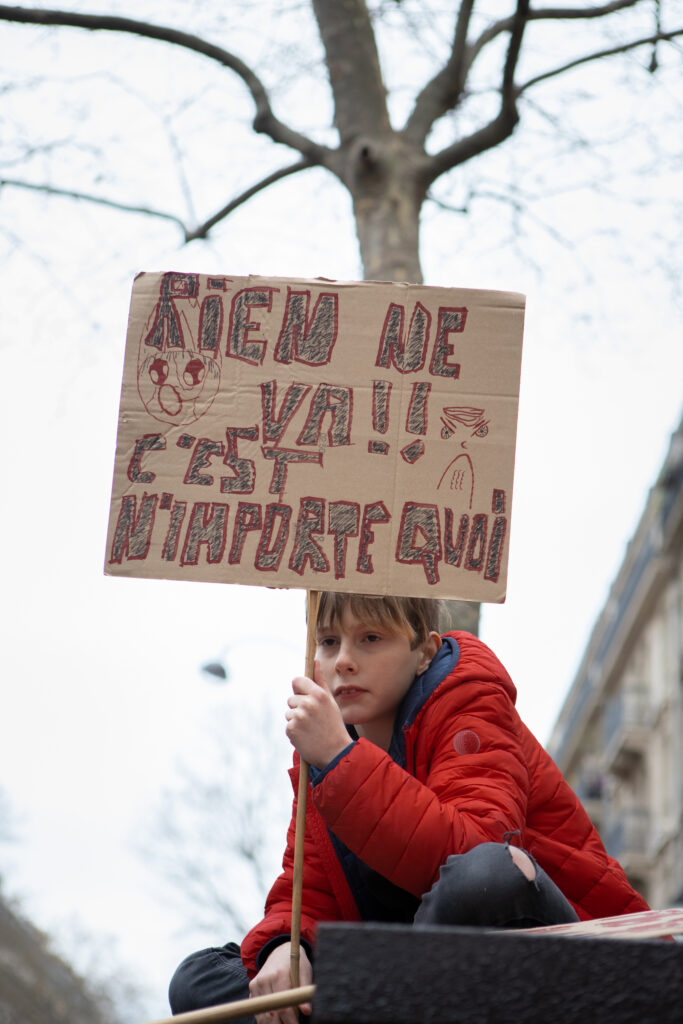 RiEN NE
VA !!
C'EST
N'iMPORTE QUOi